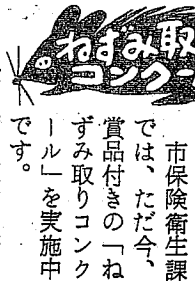 ねずみ取
コンクー
市保険衛生課
では、ただ今、
賞品付きの「ね
ずみ取りコンク
ール」を実施中
です。